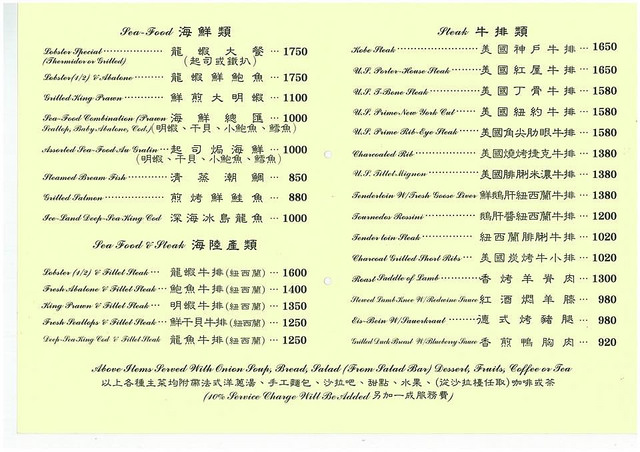 Sea-Food 海鮮類
Lobster Special 龍蝦大餐 1750
(Thermidor or Grilled) (起司或鐵扒)
Lobster (1/2) & Abalone 龍蝦鮮鮑魚 1750
Grilled King Prawn 鮮煎大明蝦 1100
Sea-Food Combination (Prawn 海鮮總匯 1000
Scallop, Baby Abalone, Cod.) (明蝦、干貝、小鮑魚、鱈魚)
Assorted Sea-Food Au Gratin 起司焗海鮮 1000
(明蝦、干貝、小鮑魚、鱈魚)
Steamed Bream Fish 清蒸潮鯛 850
Grilled Salmon 煎烤鮮鮭魚 880
Ice-Land Deep-Sea King Cod 深海冰島龍魚 1000
Sea Food & Steak 海陸產類
Lobster (1/2) & Fillet Steak 龍蝦牛排(紐西蘭) 1600
Fresh Abalone & Fillet Steak 鮑魚牛排(紐西蘭) 1400
King Prawn & Fillet Steak 明蝦牛排(紐西蘭) 1350
Fresh Scallops & Fillet Steak 鮮干貝牛排(紐西蘭) 1250
Deep-Sea King Cod & Fillet Steak 龍魚牛排(紐西蘭) 1250
Steak 牛排類
Kobe Steak 美國神戶牛排 1650
U.S. Porter-House Steak 美國紅屋牛排 1650
U.S. T-Bone Steak 美國丁骨牛排 1580
U.S. Prime New York Cut 美國紐約牛排 1580
U.S. Prime Rib-Eye Steak 美國角尖肋眼牛排 1580
Charcoaled Rib 美國燒烤捷克牛排 1380
U.S. Fillet Mignon 美國腓脷米濃牛排 1380
Tenderloin W/Fresh Goose Liver 鮮鵝肝紐西蘭牛排 1380
Tournedos Rossini 鵝肝醬紐西蘭牛排 1200
Tenderloin Steak 紐西蘭腓脷牛排 1020
Charcoal Grilled Short Ribs 美國炭烤牛小排 1020
Roast Saddle of Lamb 香烤羊脊肉 1300
Stewed Lamb Knee W/Redwine Sauce 紅酒燜羊膝 980
Eis-Bein W/Sauerkraut 德式烤豬腿 980
Grilled Duck Breast W/Blueberry Sauce 香煎鴨胸肉 920
Above Items Served With Onion Soup, Bread, Salad (From Salad Bar) Dessert, Fruits, Coffee or Tea
以上各種主菜均附薦法式洋蔥湯、手工麵包、沙拉吧、甜點、水果、(從沙拉檯任取)咖啡或茶
(10% Service Charge Will Be Added 另加一成服務費)